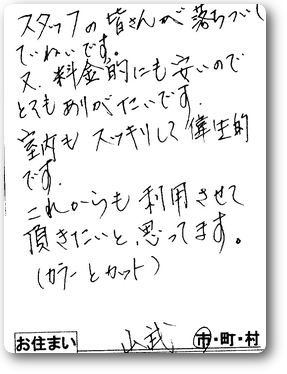 スタッフの皆さんが落ちついし
ていねいです。
又、料金的にも安いので
とてもありがたいです。
室内もスッキリして偉生的
です.
これからも利用させて
頂きたいと、思ってます。
(カラーとカット)
お住まい 山武 市・町・村